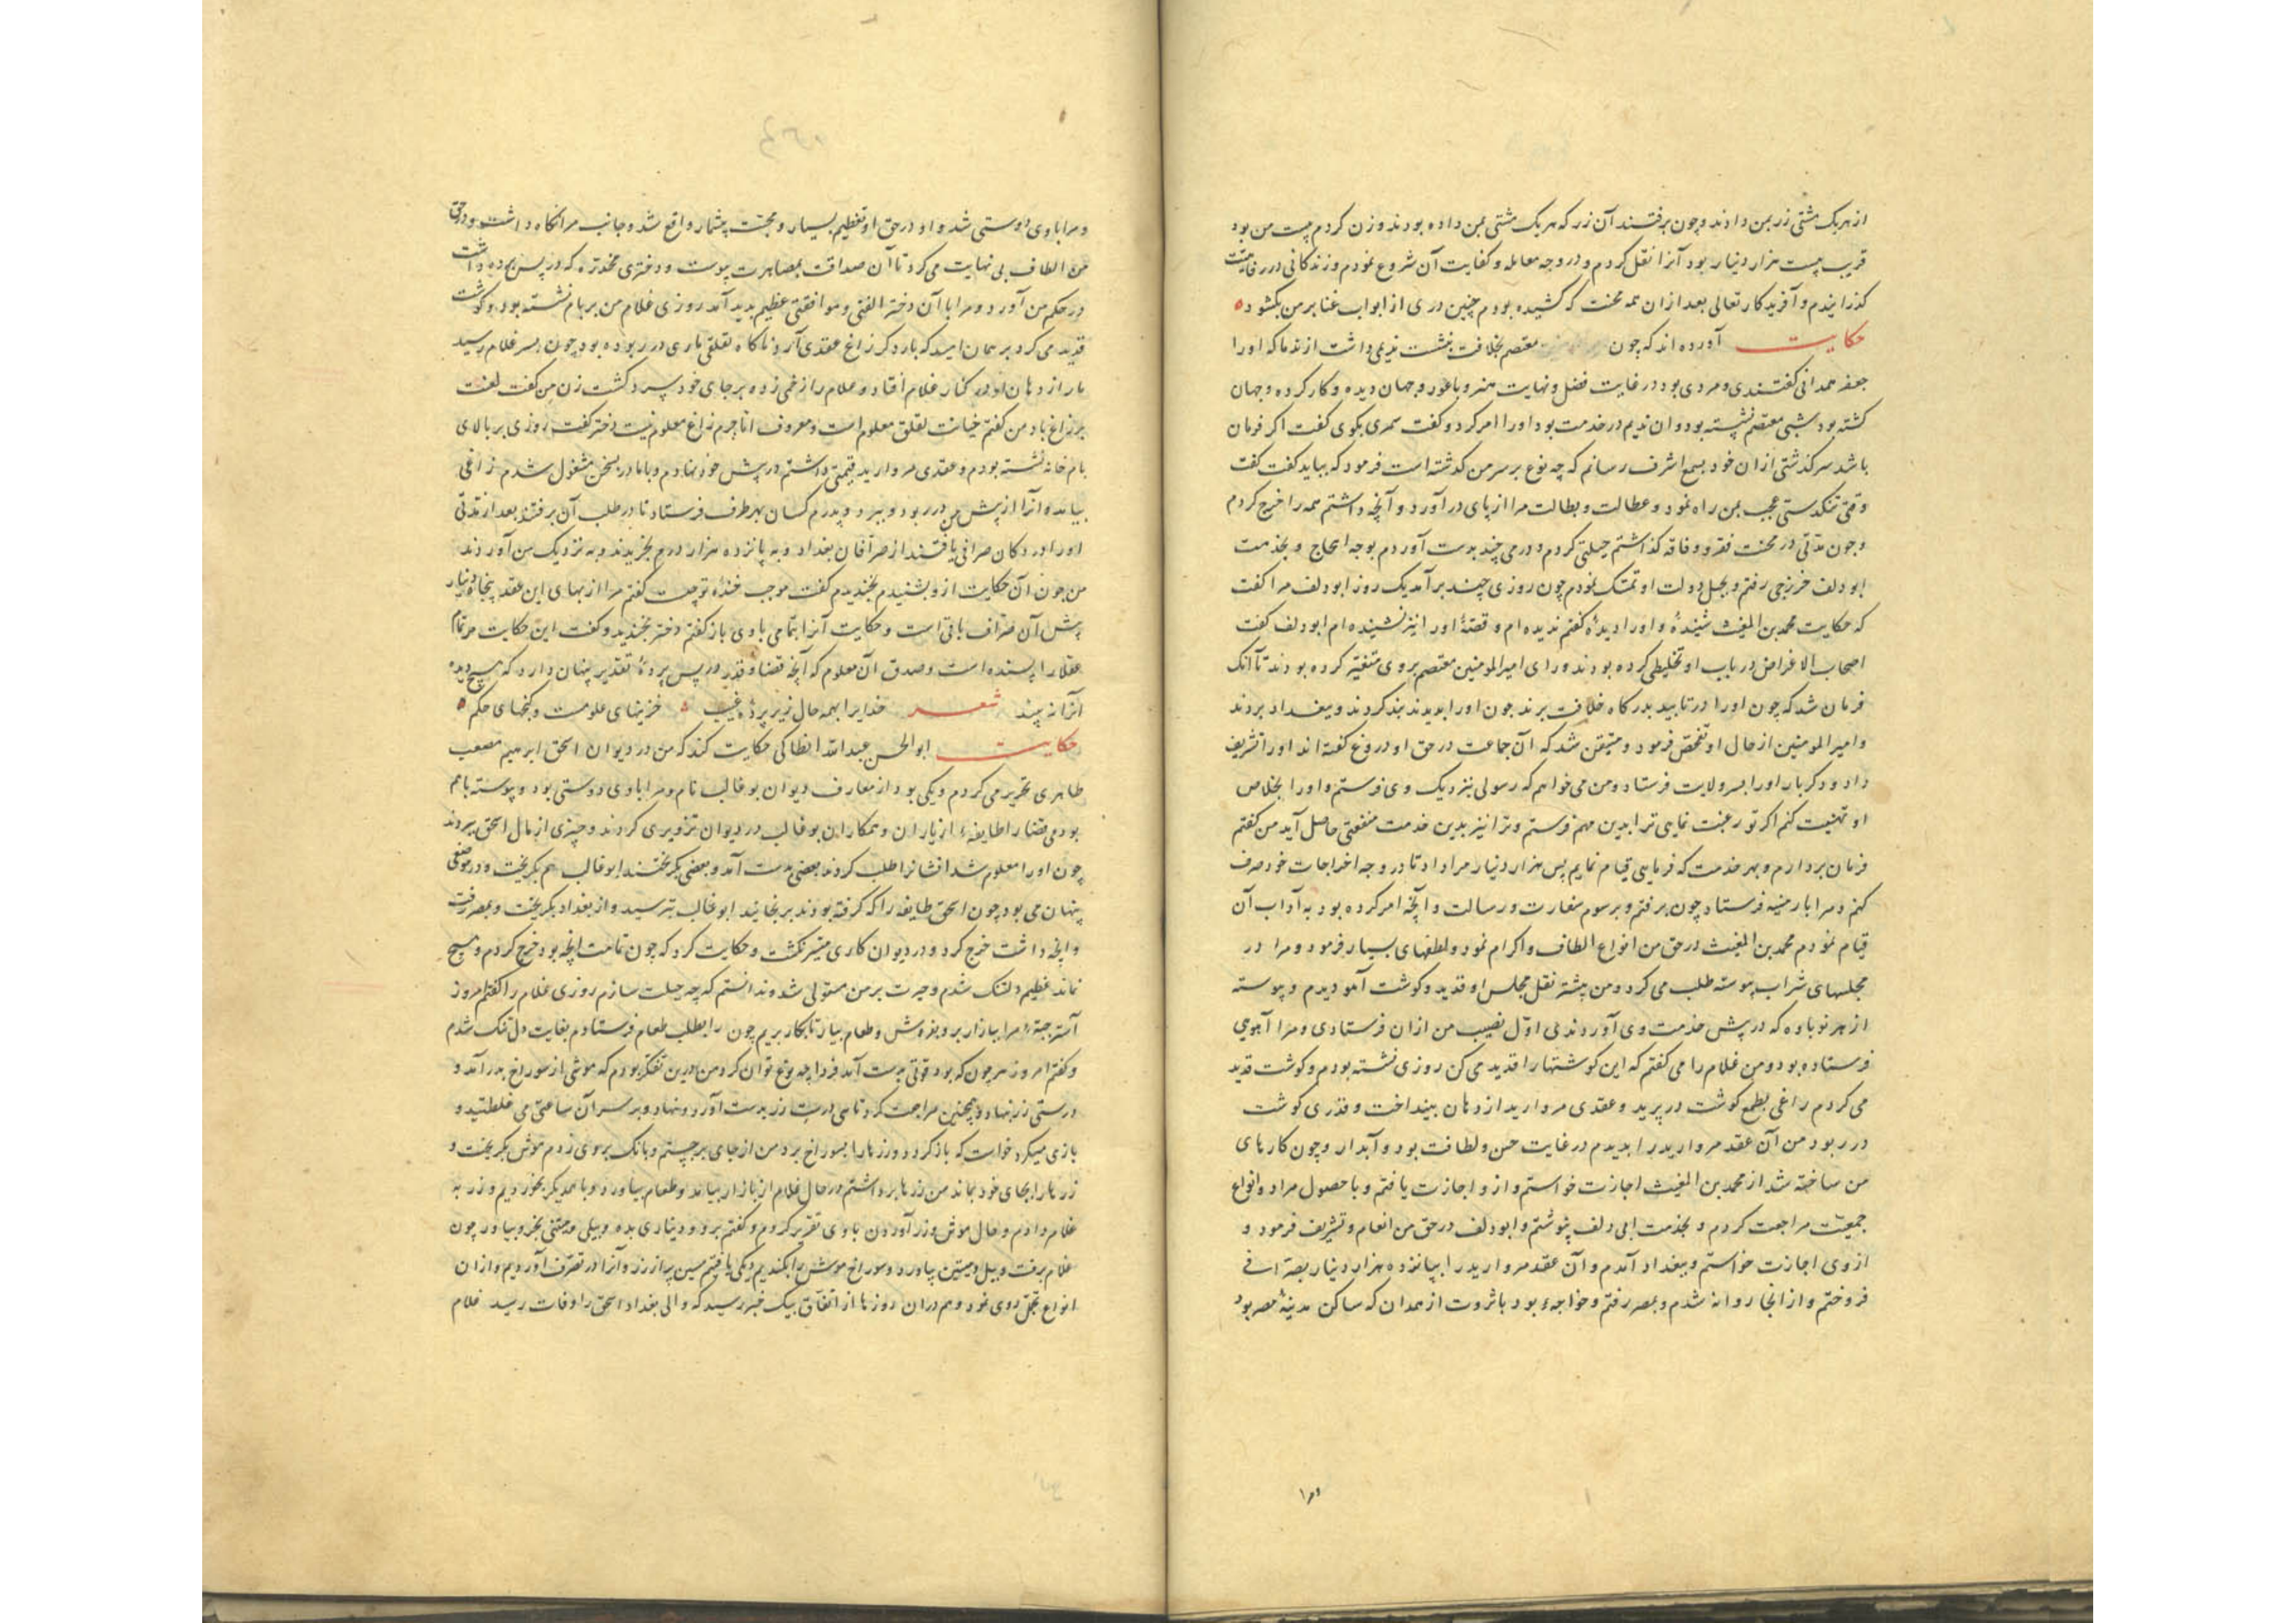 از هر یک مشتی زر بمن دادند و چون برفتند آن زر که هر یک مشتی بمن داده بودند وزن کردم بیست من بود
قریب بیست هزار دینار بود آنرا نقل کردم و در وجه معامله و کفایت آن شروع نمودم و زندکانی در رفاهیت
کذرانیدم و آفریدکار تعالی بعد از ان همه محنت که کشیده بودم چنین دری از ابواب غنا بر من بکشود
حکایت آورده اند که چون معتصم بخلافت بنشست ندیمی داشت از ندما که او را
جعفر همدانی کفتندی و مردی بود در غایت فضل و نهایت هنر و با غور و جهان دیده و کار کرده و جهان
کشته بود شبی معتصم نشسته بود و ان ندیم در خدمت بود او را امر کرد و کفت سمری بکوی کفت اکر فرمان
باشد سرکذشتی از ان خود بسمع اشرف رسانم که چه نوع بر سر من کذشته است فرمود که بباید کفت کفت
وقتی تنکدستی عجب بمن راه نمود و عطالت و بطالت مرا از پای در آورد و آنچه داشتم همه را خرج کردم
و چون مدتی در محنت فقر و فاقه کذاشتم حیلتی کردم و درمی چند بدست آوردم بوجه الحاح و بخدمت
ابو دلف خزرجی رفتم و بحبل دولت او تمسک نمودم چون روزی چند بر آمد یک روز ابو دلف مرا کفت
که حکایت محمد بن المغیث شنیدهٔ و او را دیدهٔ کفتم ندیده ام و قصهٔ او را نیز نشنیده ام ابو دلف کفت
اصحاب الاغراض در باب او تخلیطی کرده بودند و رای امیر المومنین معتصم بر وی متغیر کرده بودند تا آنک
فرمان شد که چون او را دریابید بدرکاه خلافت برند چون او را بدیدند بند کردند و ببغداد بردند
و امیر المومنین از حال او تفحص فرمود و متیقن شد که آن جماعت در حق او دروغ کفته اند او را تشریف
داد و دکر بار او را بسر ولایت فرستاد و من می خواهم که رسولی بنزدیک وی فرستم و او را بخلاص
او تهنیت کنم اکر تو رغبت نمایی ترا بدین مهم فرستم و ترا نیز بدین خدمت منفعتی حاصل آید من کفتم
فرمان بردارم و بهر خدمت که فرمایی قیام نمایم پس هزار دینار مرا داد تا در وجه اخراجات خود صرف
کنم و مرا بارمنیه فرستاد چون برفتم و برسوم سفارت و رسالت و آنچه امر کرده بود به آداب آن
قیام نمودم محمد بن المغیث در حق من انواع الطاف و اکرام نمود و لطفهای بسیار فرمود و مرا در
مجلسهای شراب پیوسته طلب می کرد و من بیشتر نقل مجلس او قدید و کوشت آهو دیدم و پیوسته
از هر نوباوه که در پیش خدمت وی آوردندی اول نصیب من از ان فرستادی و مرا آهویی
فرستاده بود و من غلام را می کفتم که این کوشتها را قدید می کن روزی نشسته بودم و کوشت قدید
می کردم زاغی بطمع کوشت در پرید و عقدی مروارید از دهان بینداخت و قدری کوشت
در ربود من آن عقد مروارید را بدیدم در غایت حسن و لطافت بود و آبدار و چون کارهای
من ساخته شد از محمد بن المغیث اجازت خواستم و از و اجازت یافتم و با حصول مراد و انواع
جمعیت مراجعت کردم و بخدمت ابی دلف پیوستم و ابو دلف در حق من انعام و تشریف فرمود و
از وی اجازت خواستم و ببغداد آمدم و آن عقد مروارید را بپانزده هزار دینار بصرافی
فروختم و از انجا روانه شدم و بمصر رفتم و خواجهٔ بود با ثروت از همدان که ساکن مدینهٔ مصر بود
و مرا با وی دوستی شد و او در حق او تعظیم بسیار و محبت بیشمار واقع شد و جانب مرا نکاه داشت و در حق
من الطاف بی نهایت می کرد تا آن صداقت بمصاهرت پیوست و دختری مخدره که در پس پرده داشت
در حکم من آورد و مرا با آن دختر الفتی و موافقتی عظیم پدید آمد روزی غلام من بر بام نشسته بود و کوشت
قدید می کرد بر همان امید که بار دکر زاغ عقدی آرد ناکاه لقلقی ماری در ربوده بود چون بسر غلام رسید
مار از دهان او در کنار غلام افتاد و غلام را زخمی زده بر جای خود سرد کشت زن من کفت لعنت
بر زاغ باد من کفتم خیانت لقلق معلوم است و معروف اما جرم زاغ معلوم نیست دختر کفت روزی بر بالای
بام خانه نشسته بودم و عقدی مروارید قیمتی داشتم در پیش خود نهادم و با مادر بسخن مشغول شدم زاغی
بیامد و آنرا از پیش من در ربود و ببرد و پدرم کسان بهر طرف فرستاد تا در طلب آن برفتند بعد از مدتی
او را در دکان صرافی یافتند از صرافان بغداد و به پانزده هزار درم بخریدند و به نزدیک من آوردند
من چون آن حکایت از و بشنیدم بخندیدم کفت موجب خندهٔ تو چیست کفتم مرا از بهای این عقد پنجاه دینار
پیش آن صراف باقی است و حکایت آنرا بتمامی با وی باز کفتم دختر بخندید و کفت این حکایت مر تمام
عقلا را پسنده است و صدق آن معلوم که آنچه قضا و قدر در پس پردهٔ تقدیر پنهان دارد که هیچ دیده
آنرا نه بیند شعر خدایرا بهمه حال زیر پردهٔ غیب خزینهای علومست و کنجهای حکم
حکایت ابو الحسن عبد الله انطاکی حکایت کند که من در دیوان اسحق ابرهیم مصعب
طاهری تحریر می کردم و یکی بود از معارف دیوان بو غالب نام و مرا با وی دوستی بود و پیوسته با هم
بودمی قضا را طایفهٔ از یاران و همکاران بو غالب در دیوان تزویری کردند و چیزی از مال اسحق ببردند
چون او را معلوم شد ایشانرا طلب کردند بعضی بدست آمد و بعضی بکریختند ابو غالب هم بکریخت و در موضعی
پنهان می بود چون اسحق طایفه را که کرفته بودند برنجانید ابو غالب بترسید و از بغداد بکریخت و بمصر رفت
و انچه داشت خرج کرد و در دیوان کاری میسر نکشت و حکایت کرد که چون تمامت انچه بود خرج کردم و هیچ
نماند عظیم دلتنک شدم و حیرت بر من مستولی شد و ندانستم که چه حیلت سازم روزی غلام را کفتم امروز
آستر جبهٔ مرا ببازار بر و بفروش و طعام بیار تا بکار بریم چون را بطلب طعام فرستادم بغایت دل تنک شدم
و کفتم امروز هر چون که بود قوتی بدست آمد فردا چه نوع توان کرد من درین تفکر بودم که موشی از سوراخ بدر آمد و
درستی زر بنهاد و همچنین مراجعت کرد تا سی درست زر بدست آورد و بنهاد و بر سر آن ساعتی می غلطید و
بازی میکرد خواست که باز کردد و زرها را بسوراخ برد من از جای برجستم و بانک بروی زدم موش بکریخت و
زرها را بجای خود بماند من زرها برداشتم در حال غلام از بازار بیامد و طعام بیاورد و با همدیکر بخوردیم و زر به
غلام دادم و حال موش و زر آوردن با وی تقریر کردم و کفتم برو و دیناری بده و بیلی و میتینی بخر و بیاور چون
غلام برفت و بیل و میتین بیاورد و سوراخ موش را بکندیم دیکی یافتیم مسین پر از زر و آنرا در تصرف آوردیم و از ان
انواع تجمل روی نمود و هم دران روزها از اتفاق نیک خبر رسید که والی بغداد اسحق را وفات رسید غلام